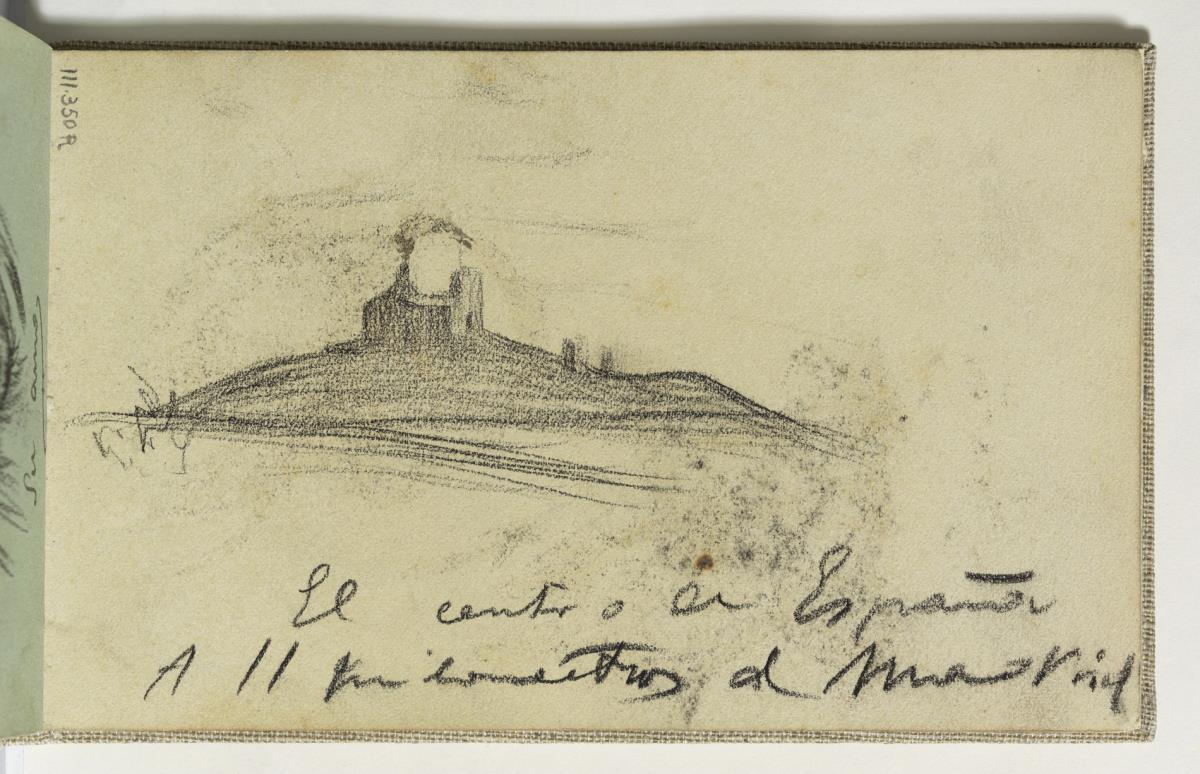 111.350A
Su amo
El centro de España
A 11 kilometros d Madrid